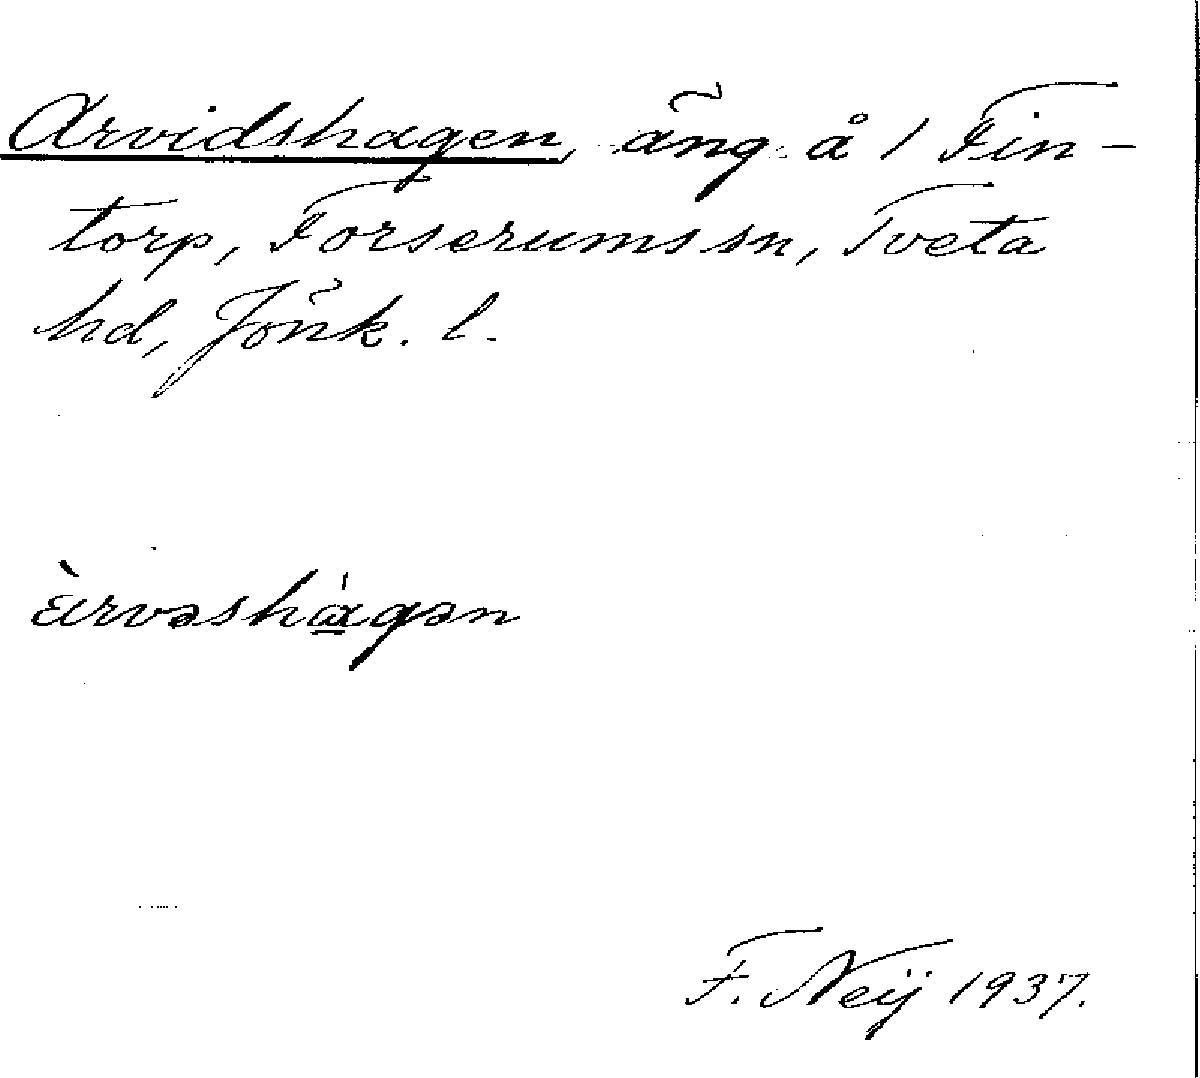 Arvidshagen, äng å 1 Fin-
torp, Forserums sn, Tveta
hd, Jönk. l.
àrvəshá̱gən
F. Neij 1937.